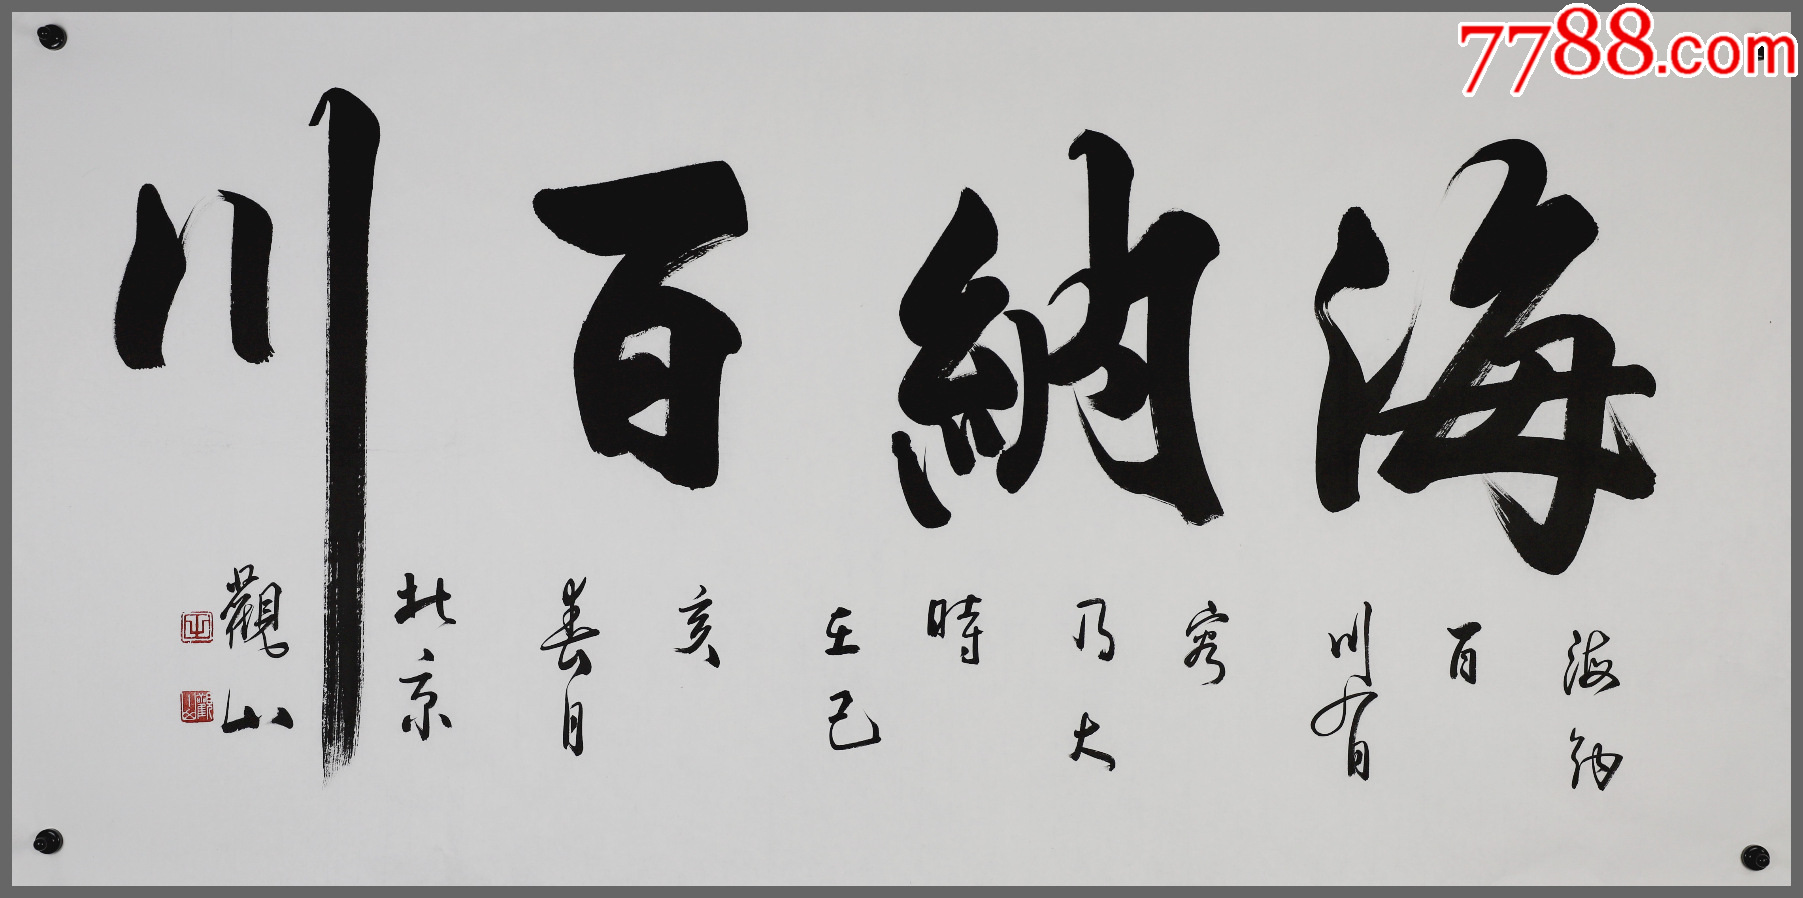 海納百川
海納
百
川有
容
乃大
時
在己
亥
春月
北京
觀山
7788.com